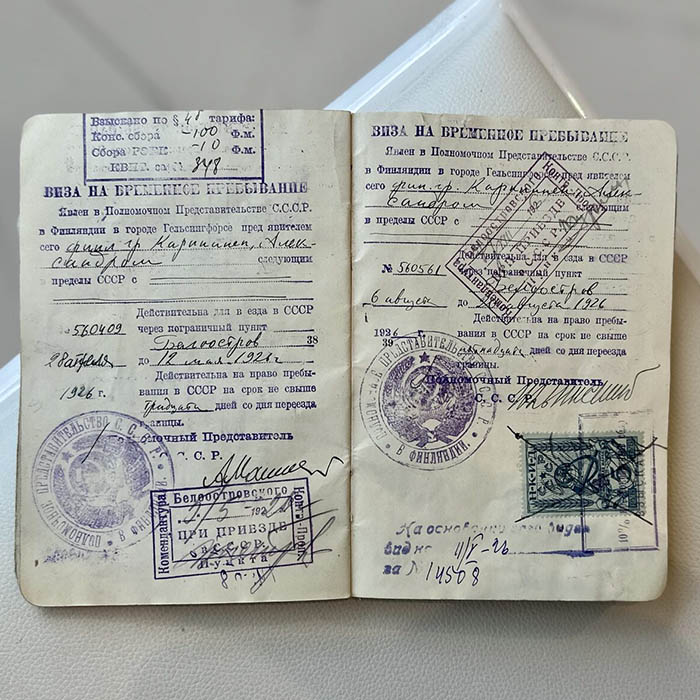 Взыскано по § 45 тарифа:
Конс. сбора -100 Ф.м.
Сбора -10 Ф.м.
КВИТ. 348
ВИЗА НА ВРЕМЕННОЕ ПРЕБЫВАНИЕ
Явлен в Полномочном Представительстве С.С.С.Р.
в Финляндии в городе Гельсингфорсе пред явителем
сего финл. гр. Карпинен, Алек-
сандром следующим
в пределы СССР с
Действительна для в езда в СССР
№ 560409 через пограничный пункт
Белоостров 38
28 апреля до 12 мая 1926 г.
Действительна на право пребы-
1926 г. вания в СССР на срок не свыше
тридцати дней со дня переезда
границы.
Полномочный Представитель
С. С. Р.
ПОЛНОМОЧНОЕ ПРЕДСТАВИТЕЛЬСТВО С.С.С.Р. В ФИНЛЯНДИИ
Комендатура
Белоостровского
Контр.-Проп.
2/5 192
ПРИ ПРИЕЗДЕ
в С.С.С.Р.
Пункта
ВИЗА НА ВРЕМЕННОЕ ПРЕБЫВАНИЕ
Явлен в Полномочном Представительстве С.С.С.Р.
в Финляндии в городе Гельсингфорсе пред явителем
сего финл. гр. Карпинен, Алек-
сандром следующим
в пределы СССР с
Белоостровского
Контр.-Проп.
ПРИ ПРИЕЗДЕ
Действительна для в езда в СССР
№ 560561 через пограничный пункт
Белоостров
6 августа до августа 1926
Действительна на право пребы-
1926 вания в СССР на срок не свыше
39 дней со дня переезда
границы.
Полномочный Представитель
С. С. С. Р.
ПОЛНОМОЧ. ПРЕДСТАВИТЕЛЬСТВО С.С.С.Р. В ФИНЛЯНДИИ
Н.К.И.Д.
5
10%
На основании
за № 14508